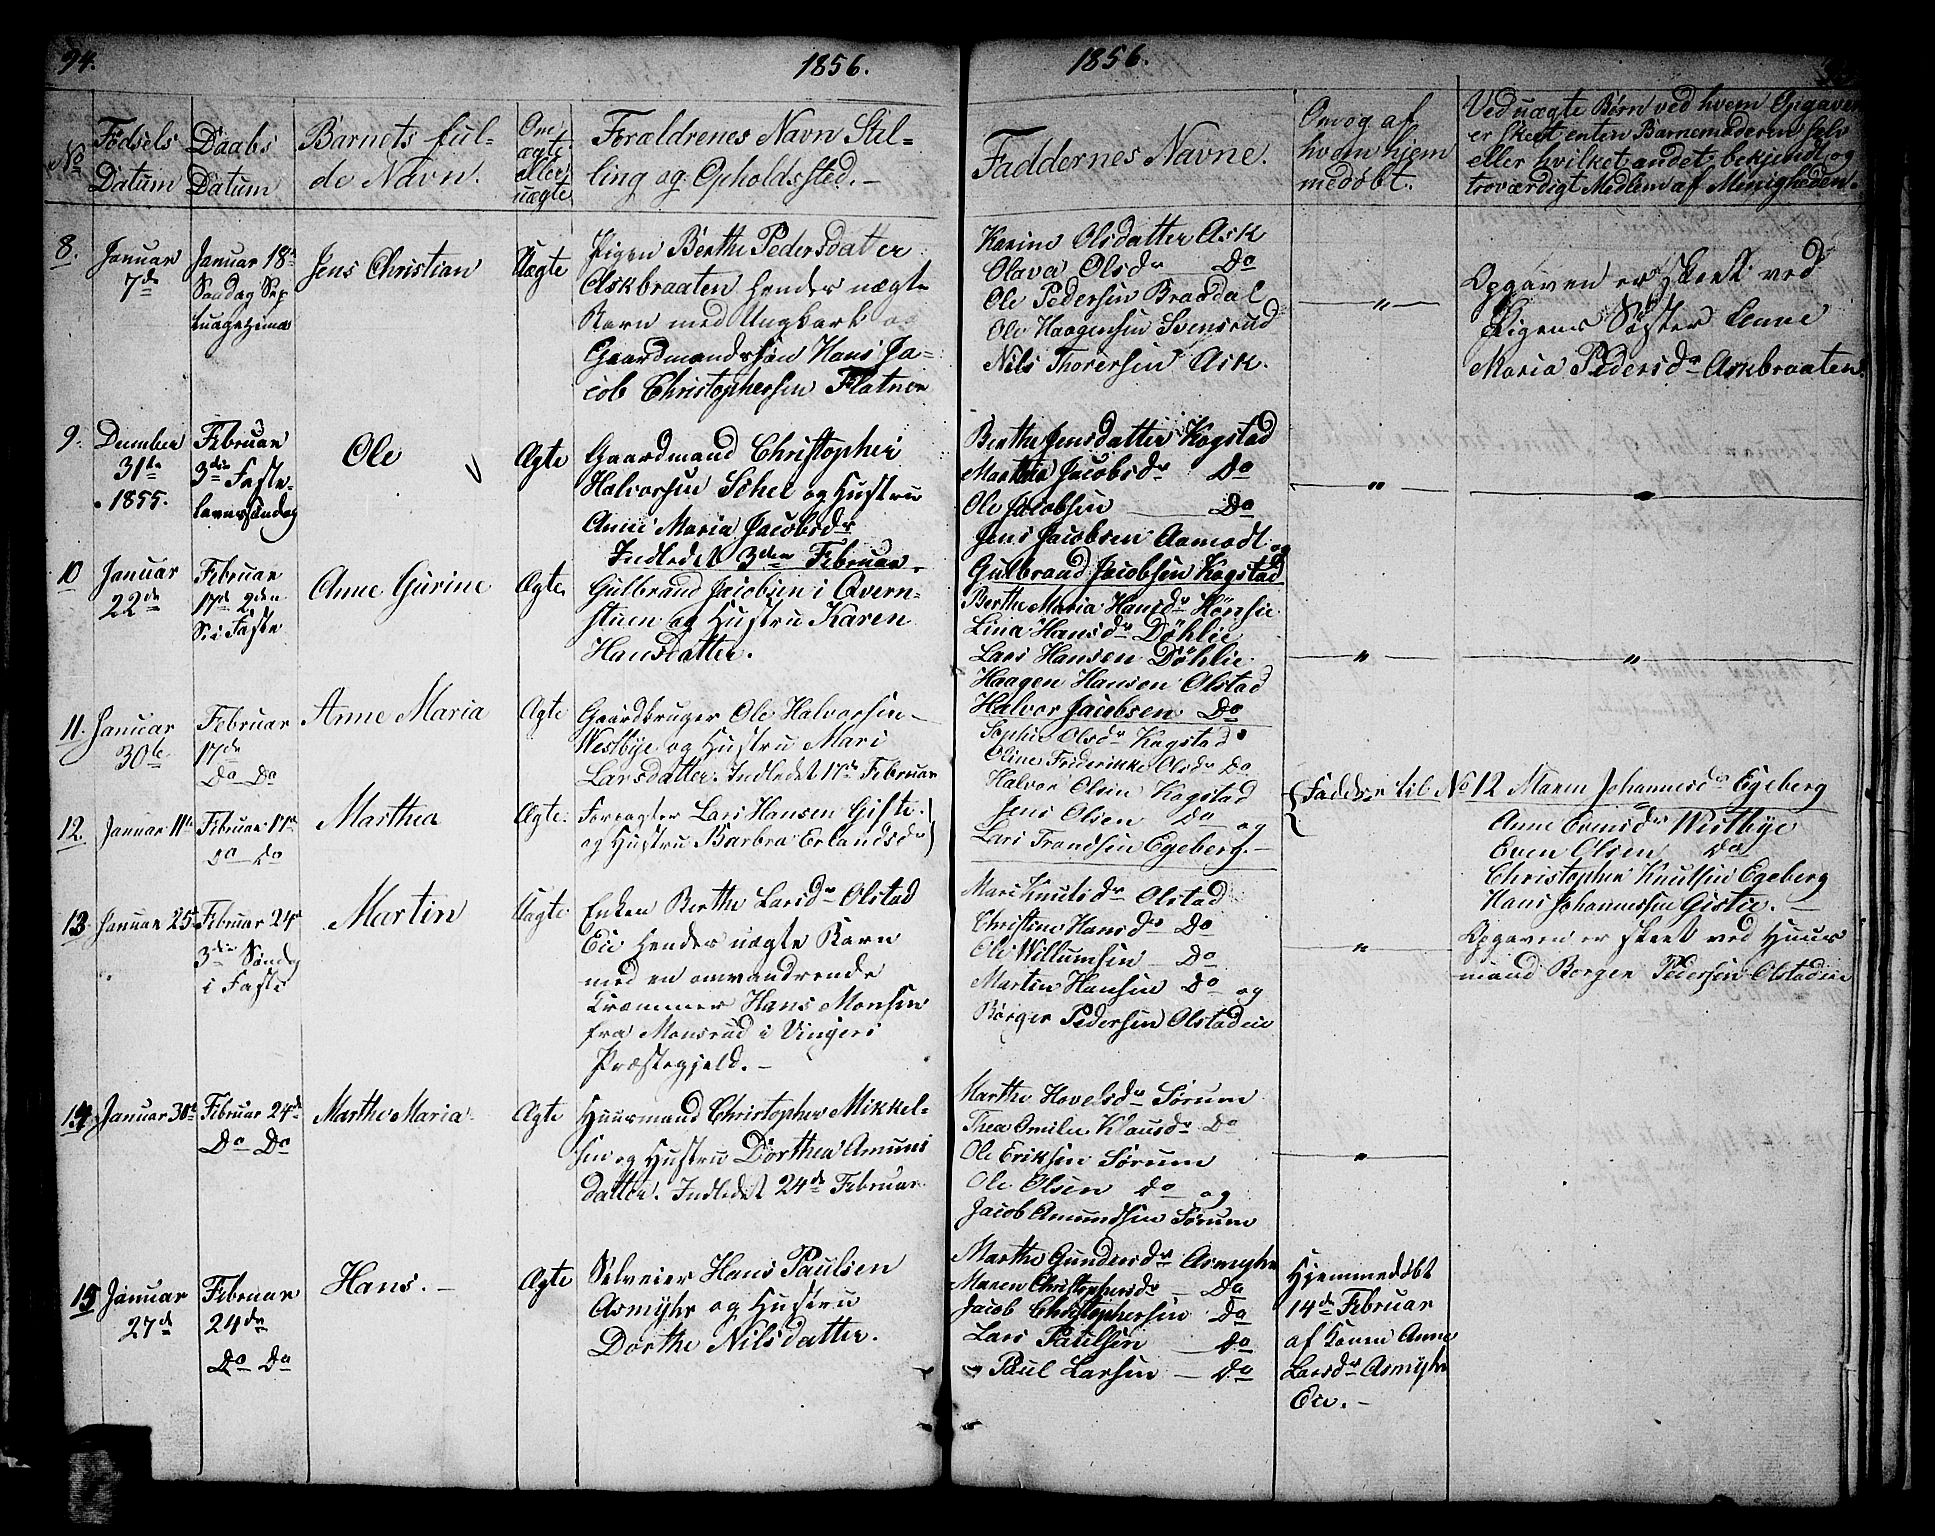 94.
1856.
No
Fødsels
Datum
Daabs
Datum
Barnets ful-
de Navn.
Om
ægte
eller
uægte
Forældrenes Navn Stil-
ling og Opholdssted. -
8.
Januar
7de
Januar 18de
Søndag Sep
tuagezima
Jens Christian
Uægte
Pigen Berthe Pedersdatter
Askbraaten hendes uægte
Barn med Ungkarl og
Gaardmandssøn Hans Ja-
cob Christophersen Flatner
9.
December
31te
1855.
Februar
3die Faste-
lavnssøndag
Ole
Ægte
Gaardmand Christopher
Halvorsen Schee og Hustru
Anne Maria Jacobsdr
Indledet 3die Februar.
10
Januar
22de
Februar
17de 2den
S. i Faste
Anne Gurine
Ægte
Gulbrand Jacobsen i Qvern-
stuen og Hustru Karen
Hansdatter.
11.
Januar
30te
Februar
17de
Do Do
Anne Maria
Ægte
Gaardbruger Ole Halvorsen -
Westbye og Hustru Mari
Larsdatter. Indledet 17de Februar
12.
Januar 11te
Februar 17de
Do Do
Marthea
Ægte
Forpagter Lars Hansen Gistie
og Hustru Barbra Erlandsdr
13.
Januar 25de
Februar 24de
3die Søndag
i Faste
Martin
Uægte
Enken Berthe Larsdr Olstad
Eie hendes uægte Barn
med en omvandrende
Kræmmer Hans Monsen
fra Monsrud i Vingers
Præstegjeld. -
14.
Januar 30te
Februar 24de
Do Do
Marthe Maria
Ægte
Huusmand Christopher Mikkel-
sen og Hustru Dorthea Amuns
datter. Indledet 24de Februar
15
Januar
27de
Februar
24de
Do Do
Hans. -
Ægte
Selveier Hans Paulsen
Asmyhr og Hustru
Dorthe Nilsdatter.
1856.
Faddernes Navne.
Om og af
hvem hjem
medøbt.
Ved uægte Børn ved hvem Opgaven
er skeet enten Barnemoderen selv
eller hvilket andet bekjendt og
troværdigt Medlem af Menigheden.
Karine Olsdatter Ask
Olava Olsdr Do
Ole Pedersen Braadal
Ole Haagensen Svensrud
Nils Thorersen Ask.
"
Opgaven er skeet ved
Pigens Søster Anne
Maria Pedersdr Askbraaten.
Berthe Jensdatter Kogstad
Marthe Jacobsdr Do
Ole Jacobsen Do
Jens Jacobsen Aamodt og
Gulbrand Jacobsen Kogstad
"
Berthe Maria Hansdr Hønsie
Lina Hansdr Døhlie
Lars Hansen Døhlie
Haagen Hansen Olstad
Halvor Jacobsen Do
"
"
Sophie Olsdr Kogstad
Oline Frederikke Olsdr Do
Halvor Olsen Kogstad
Jens Olsen Do og
Lars Trondsen Egeberg. -
Faddere til No 12 Maren Johannesdr Egeberg
Anne Evensdr Westbye
Even Olsen Do
Christopher Knutsen Egeberg
Hans Johannessen Gistie. -
Mari Knutsdr Olstad
Christine Hansdr Do
Ole Willumsen Do
Martin Hansen Do og
Børger Pedersen Olstadeie
"
Opgaven er skeet ved Huus
mand Børger Pedersen Olstadeie
Marthe Hovelsdr Sørum
Thea Emilie Klausdr Do
Ole Eriksen Sørum
Ole Olsen Do og
Jacob Amundsen Sørum
"
Marthe Gundersdr Asmyhr
Maren Christophersdr Do
Jacob Christophersen Do
Lars Paulsen Do
Paul Larsen - Do
Hjemmedøbt
14de Februar
af Konen Anne
Larsdr Asmyhr
Eie. -